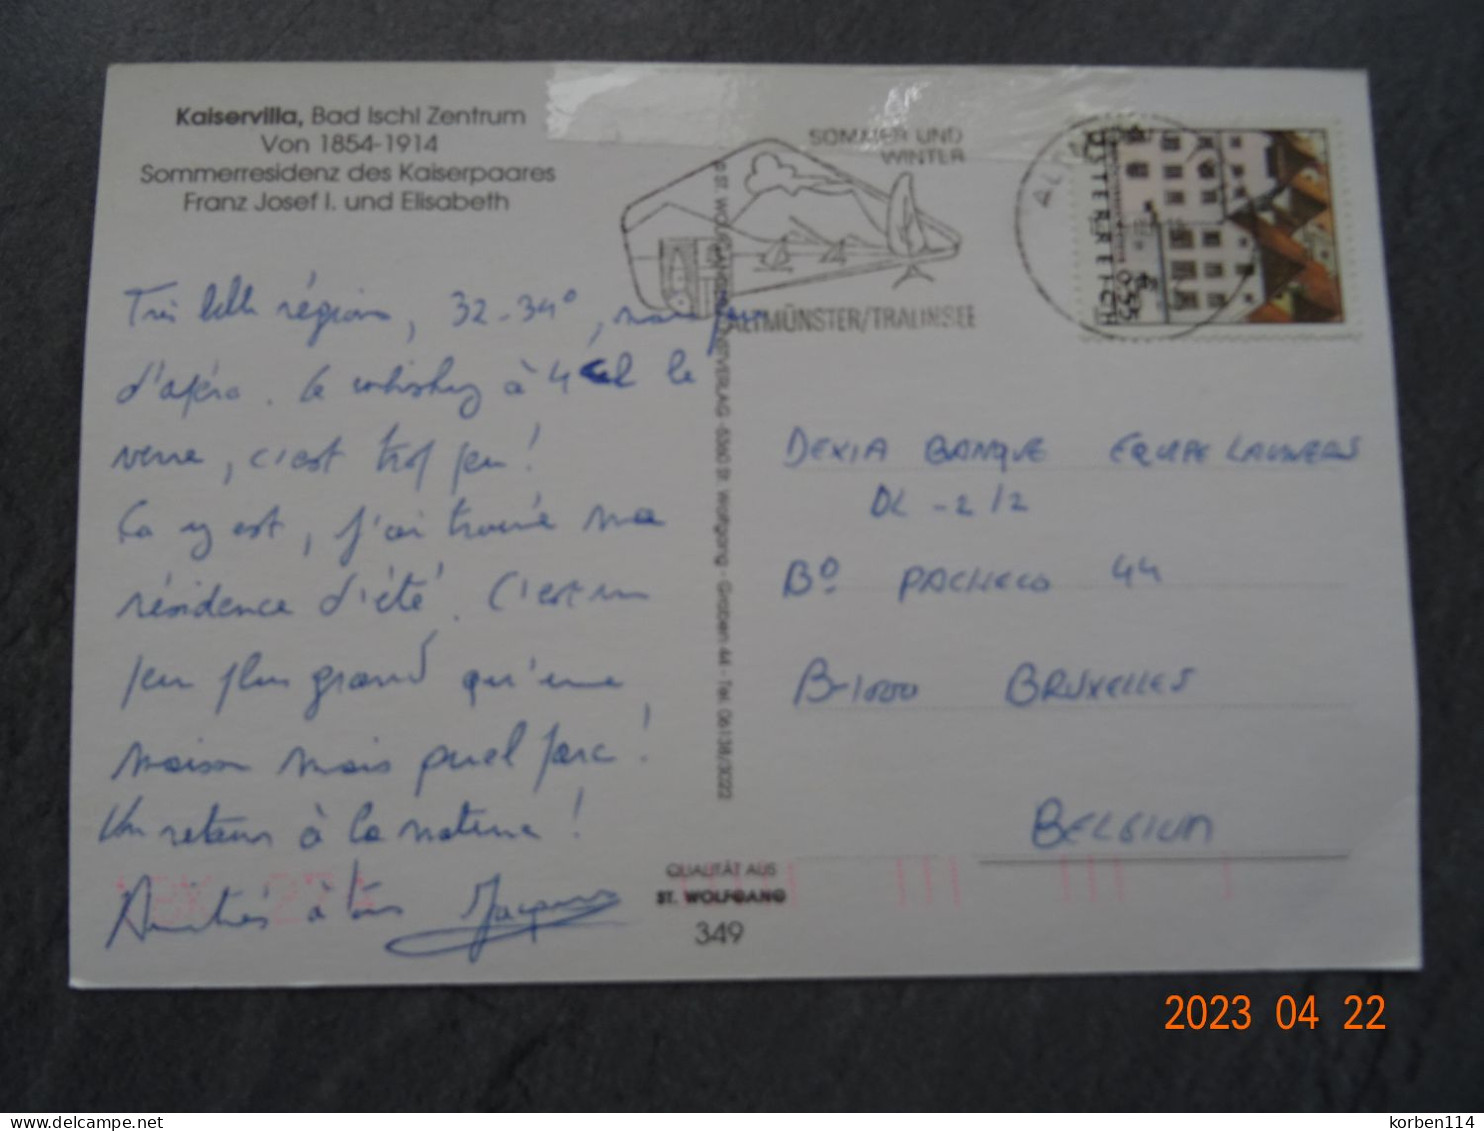 Kaiservilla, Bad Ischl Zentrum
Von 1854-1914
Sommerresidenz des Kaiserpaares
Franz Josef I. und Elisabeth
Très belle région, 32-34°, mais peu
d'apéro. Le whisky à 4 cl le
verre, c'est trop peu!
Ça y est, j'ai trouvé ma
résidence d'été. C'est un
peu plus grand qu'une
maison mais quel parc!
Un retour à la nature!
Amitiés à tous Jacques
SOMMER UND
WINTER
ALTMÜNSTER/TRAUNSEE
ÖSTERREICH
0,55
€
St. Wolfgang - Graben 44 - Tel. 06138/3022
QUALITÄT AUS
ST. WOLFGANG
349
DEXIA BANQUE EQUIPE LAUWERS
DL - 2/2
Bº PACHECO 44
B-1000 BRUXELLES
BELGIUM
2023 04 22
delcampe.net
korben114